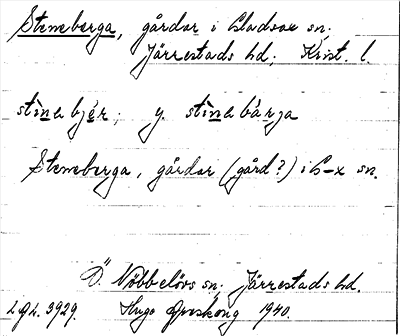 Steneberga, gårdar i Gladsax sn.
Järrestads hd, Krist. l.
stìnabjér; y. stìnabárja
Steneberga, gårdar (gård?) i G-x sn.
Ö. Nöbbelövs sn, Järrestads hd.
L.A. 3929. Hugo Areskoug 1940.